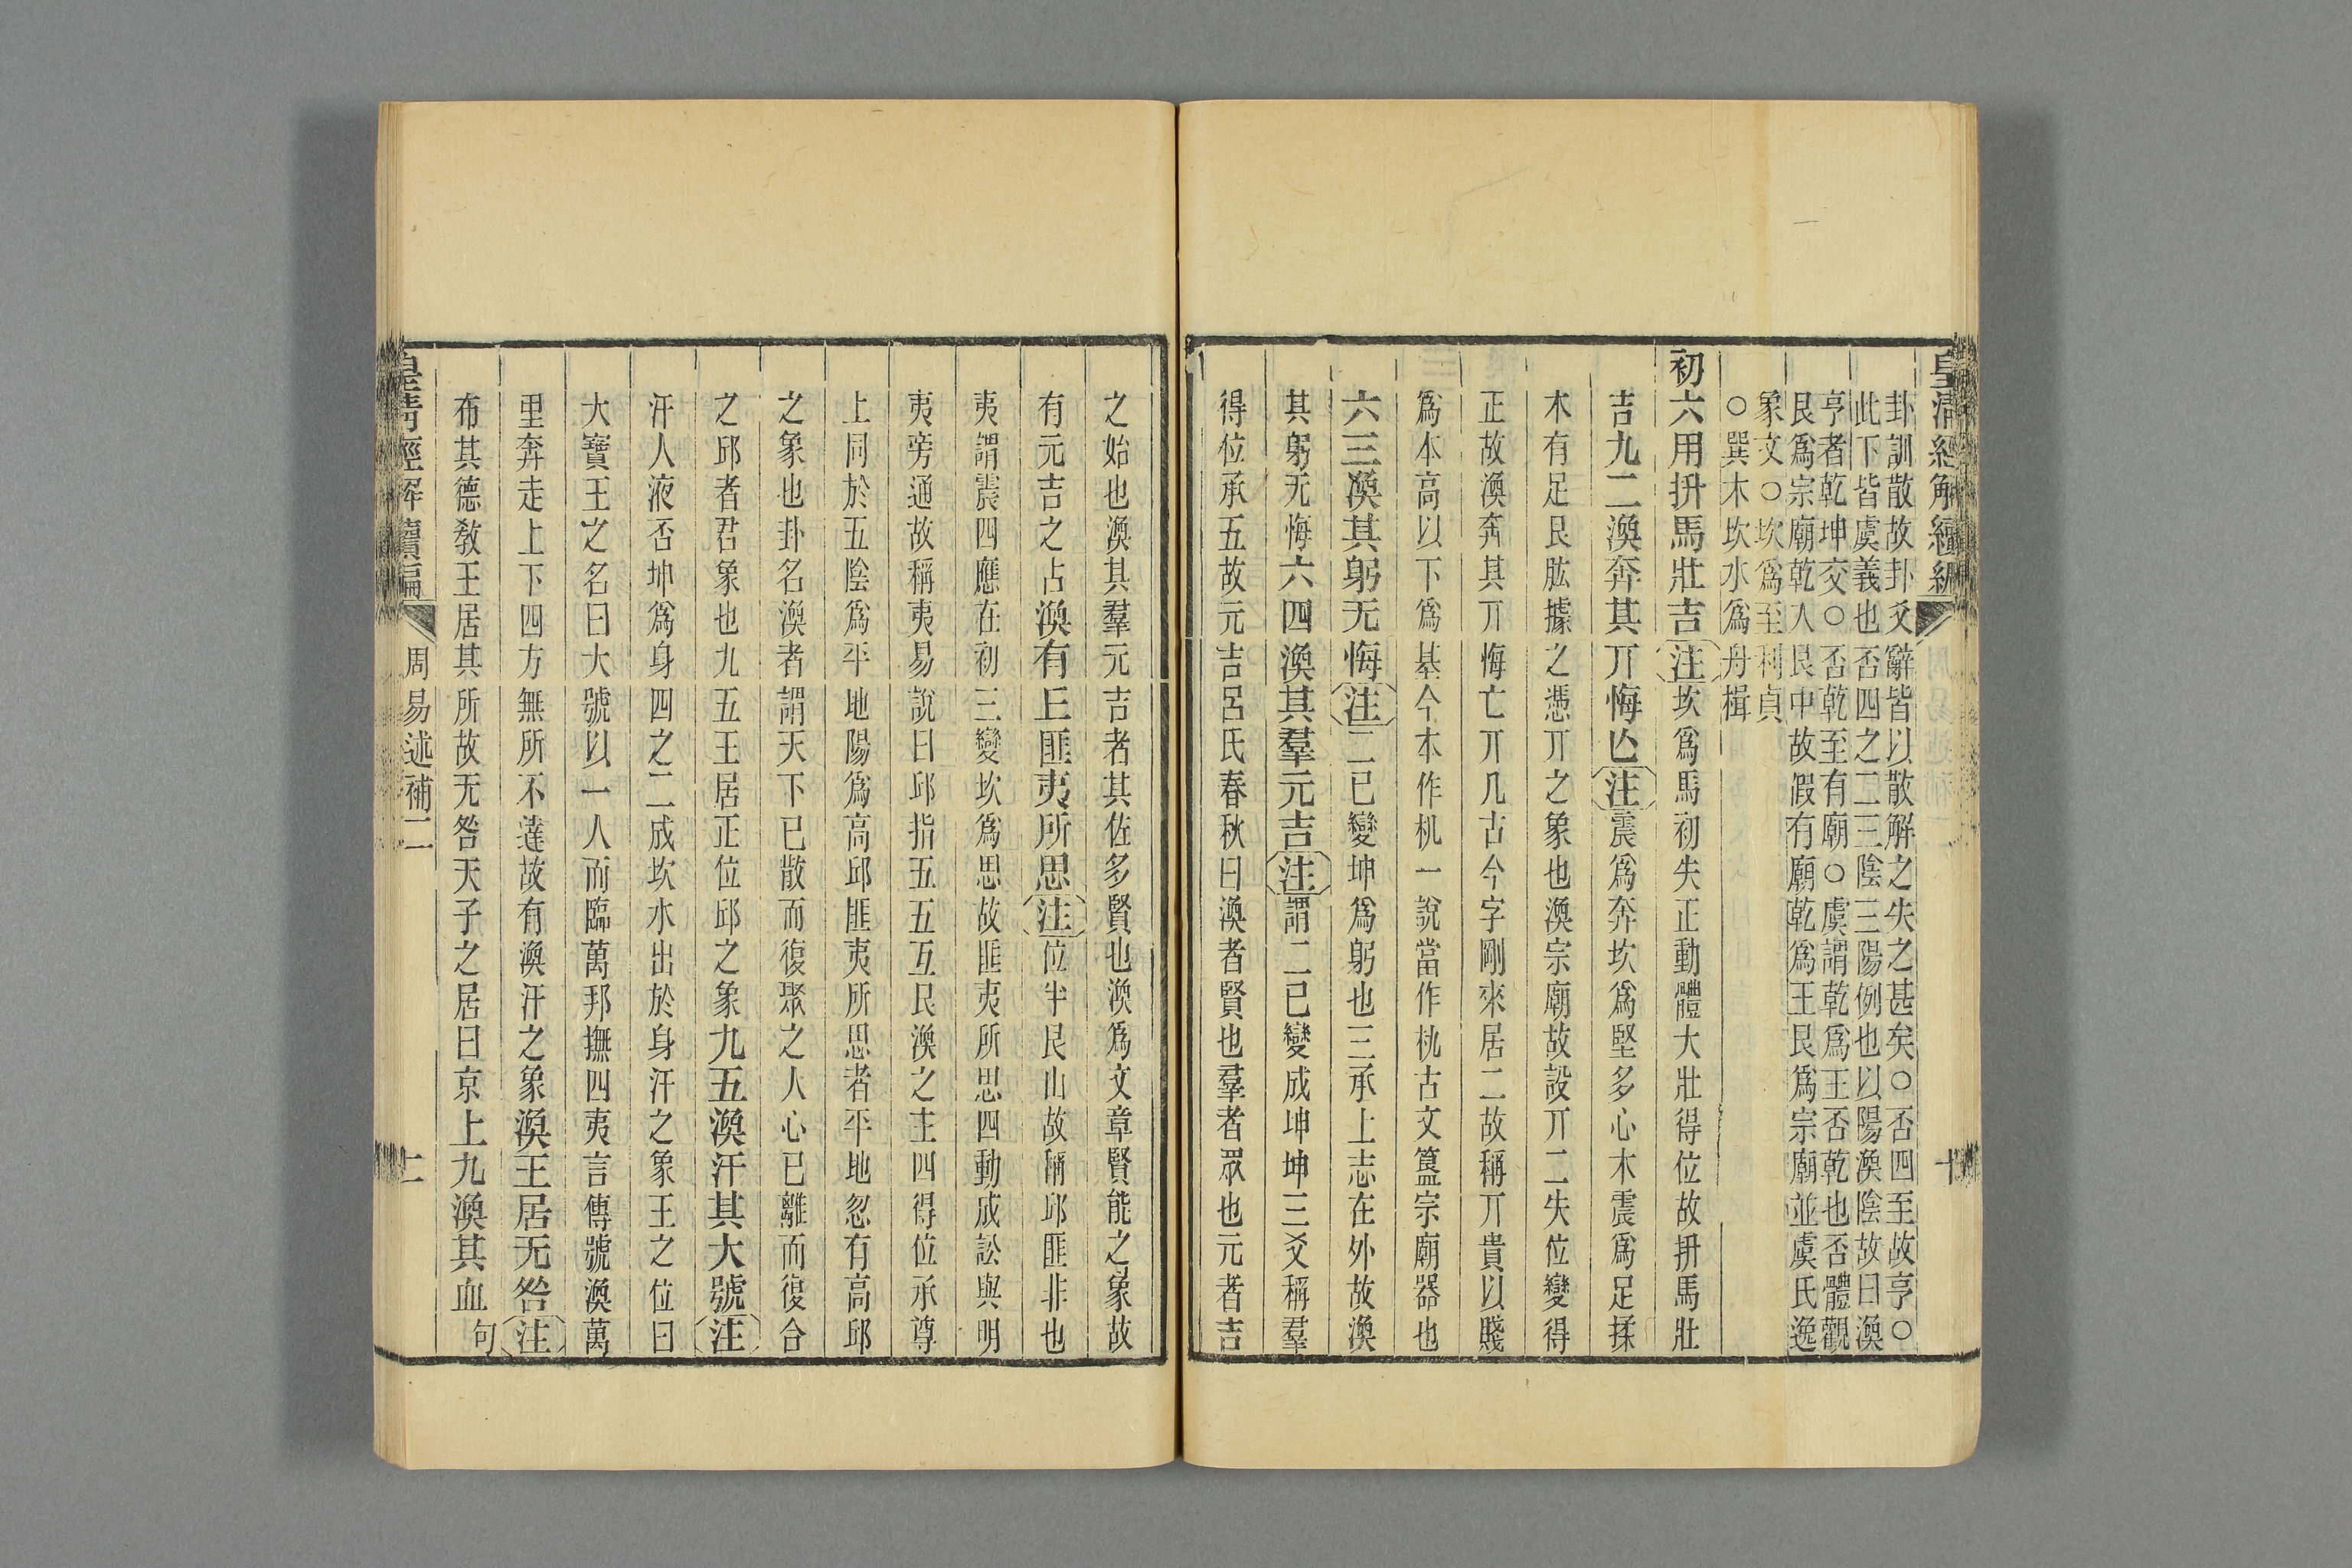 皇清經解續編
十
卦訓散故卦爻辭皆以散解之失之甚矣○否四至故亨○
此下皆虞義也否四之二二三陰三陽例也以陽渙陰故曰渙
亨者乾坤交○否乾至有廟○虞謂乾爲王否乾也否體觀
艮爲宗廟乾人艮中故假有廟乾爲王艮爲宗廟並虞氏逸
象文○坎爲至利貞
○巽木坎水爲舟楫
初六用拼馬壯吉注坎爲馬初失正動體大壯得位故拼馬壯
吉九二渙奔其丌悔亾注震爲奔坎爲堅多心木震爲足揉
木有足艮肱據之憑丌之象也渙宗廟故設丌二失位變得
正故渙奔其丌悔亡丌几古今字剛來居二故稱丌貴以賤
爲本高以下爲基今本作机一說當作朹古文簋宗廟器也
六三渙其躬无悔注二已變坤爲躬也三承上志在外故渙
其躬无悔六四渙其羣元吉注謂二已變成坤坤三爻稱羣
得位承五故元吉呂氏春秋曰渙者賢也羣者眾也元者吉
之始也渙其羣元吉者其佐多賢也渙爲文章賢能之象故
有元吉之占渙有丘匪夷所思注位半艮山故稱邱匪非也
夷謂震四應在初三變坎爲思故匪夷所思四動成訟與明
夷旁通故稱夷易說曰邱指五五互艮渙之主四得位承尊
上同於五陰爲平地陽爲高邱匪夷所思者平地忽有高邱
之象也卦名渙者謂天下已散而復聚之人心已離而復合
之邱者君象也九五王居正位邱之象九五渙汗其大號注
汗人液否坤爲身四之二成坎水出於身汗之象王之位曰
大寶王之名曰大號以一人而臨萬邦撫四夷言傳號渙萬
里奔走上下四方無所不達故有渙汗之象渙王居无咎注
布其德敎王居其所故无咎天子之居曰京上九渙其血句
皇清經解續編
周易述補二